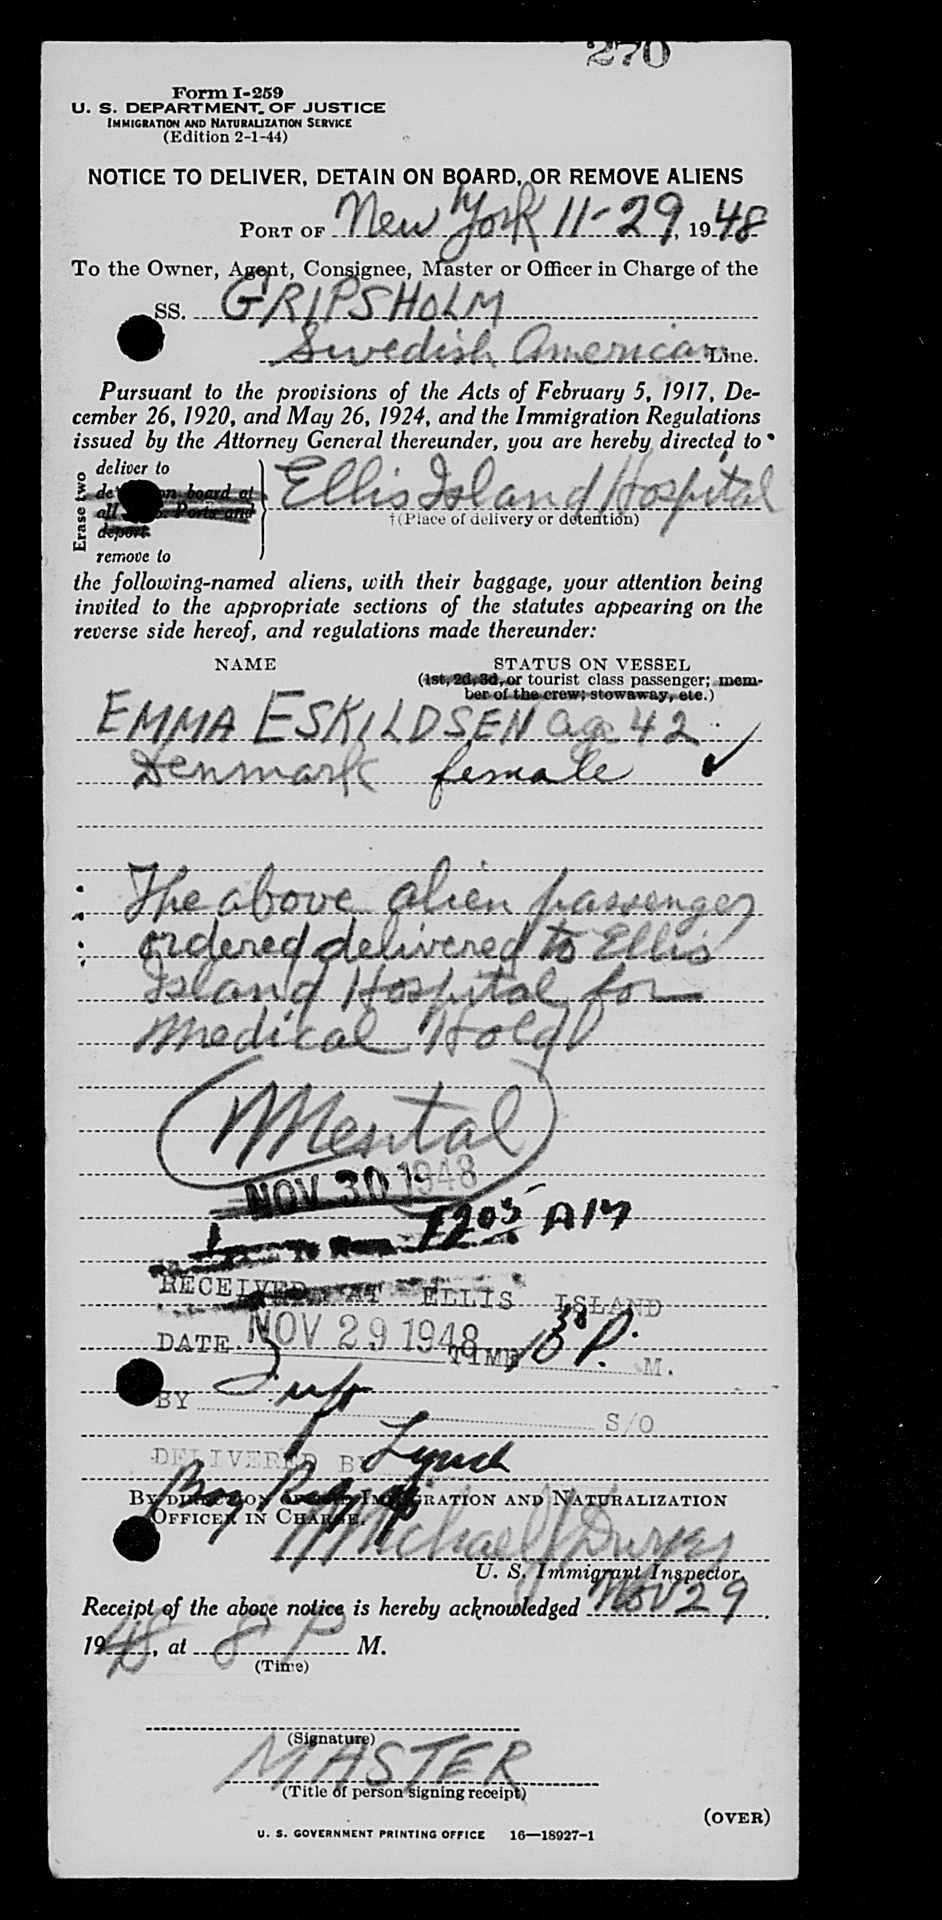 270
Form I-259
U. S. DEPARTMENT OF JUSTICE
IMMIGRATION AND NATURALIZATION SERVICE
(Edition 2-1-44)
NOTICE TO DELIVER, DETAIN ON BOARD, OR REMOVE ALIENS
PORT OF New York 11-29, 1948
To the Owner, Agent, Consignee, Master or Officer in Charge of the
SS. GRIPSHOLM
Swedish American Line.
Pursuant to the provisions of the Acts of February 5, 1917, De-
cember 26, 1920, and May 26, 1924, and the Immigration Regulations
issued by the Attorney General thereunder, you are hereby directed to
Erase two
deliver to
on board at
all Ports and
deport
remove to
Ellis Island Hospital
†(Place of delivery or detention)
the following-named aliens, with their baggage, your attention being
invited to the appropriate sections of the statutes appearing on the
reverse side hereof, and regulations made thereunder:
NAME STATUS ON VESSEL
(1st, 2d, 3d, or tourist class passenger; mem-
ber of the crew; stowaway, etc.)
EMMA ESKILDSEN age 42
Denmark female ✓
The above alien passenger
ordered delivered to Ellis
Island Hospital for
Medical Hold
Mental
NOV 30 1948
1205 AM
RECEIVED AT ELLIS ISLAND
DATE NOV 29 1948 TIME 10 30 P. M.
BY S/O
DELIVERED BY Lynch
BY DIRECTION OF THE IMMIGRATION AND NATURALIZATION
OFFICER IN CHARGE.
Michael J
U. S. Immigrant Inspector.
Receipt of the above notice is hereby acknowledged Nov 29,
1948, at 8 P M.
(Time)
(Signature)
MASTER
(Title of person signing receipt)
(OVER)
U. S. GOVERNMENT PRINTING OFFICE 16—18927-1